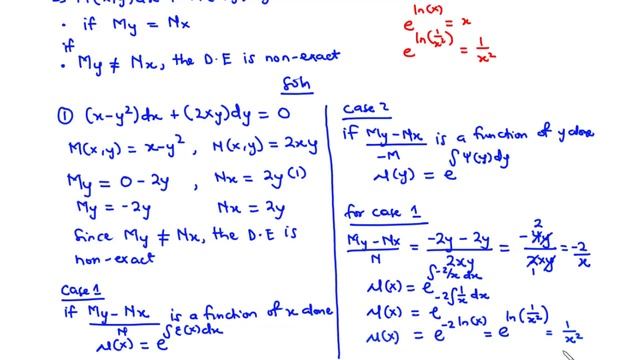 • if My = Nx
if
• My ≠ Nx, the D.E is non-exact
e^ln(x) = x
e^ln(1/x²) = 1/x²
Soln
① (x-y²)dx + (2xy)dy = 0
M(x,y) = x-y² , N(x,y) = 2xy
My = 0 - 2y , Nx = 2y(1)
My = -2y Nx = 2y
Since My ≠ Nx, the D.E is
non-exact
Case 1
if My-Nx/N is a function of x alone
μ(x) = e^∫ξ(x)dx
Case 2
if My-Nx/-M is a function of y alone
μ(y) = e^∫Ψ(y)dy
for case 1
My-Nx/N = -2y-2y/2xy = -4y/2xy = -2/x
μ(x) = e^∫-2/x dx
μ(x) = e^-2∫1/x dx
μ(x) = e^-2ln(x) = e^ln(1/x²) = 1/x²